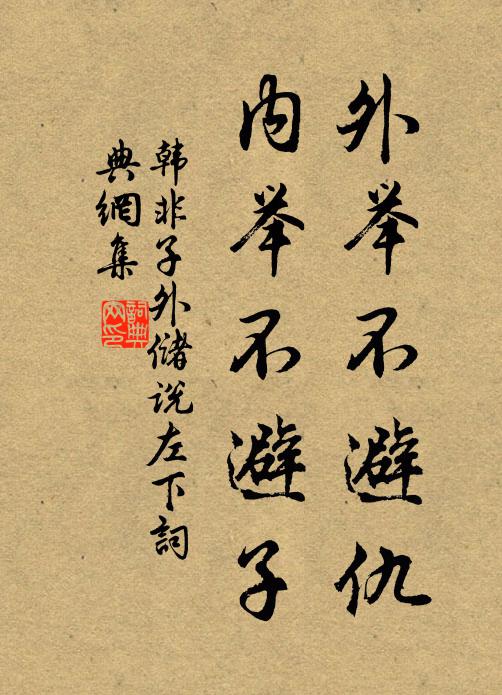 外举不避仇
内举不避子
韩非子外储说左下詞
典網集
詞典
网印